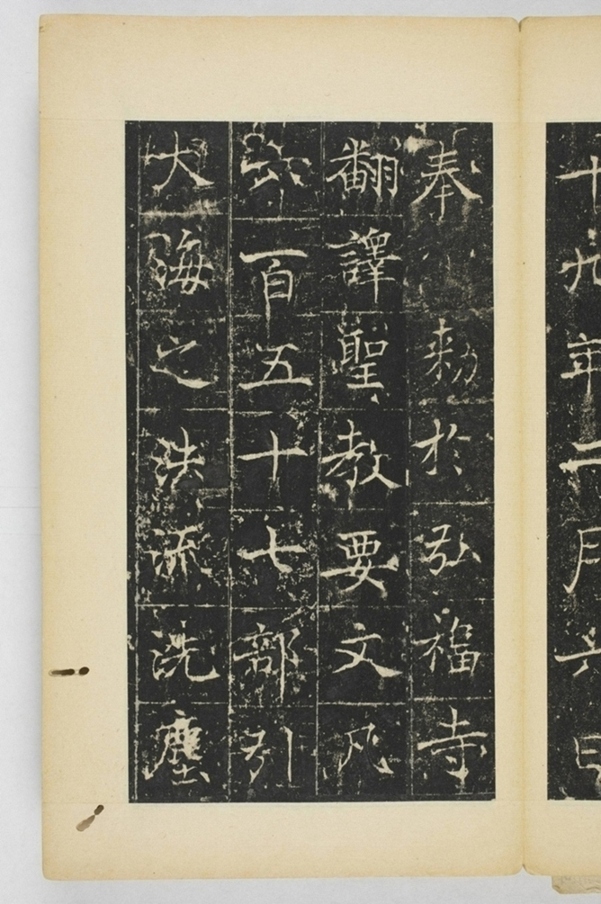 十九年二月六日
奉敕於弘福寺
翻譯聖教要文凡
六百五十七部引
大海之法流洗塵